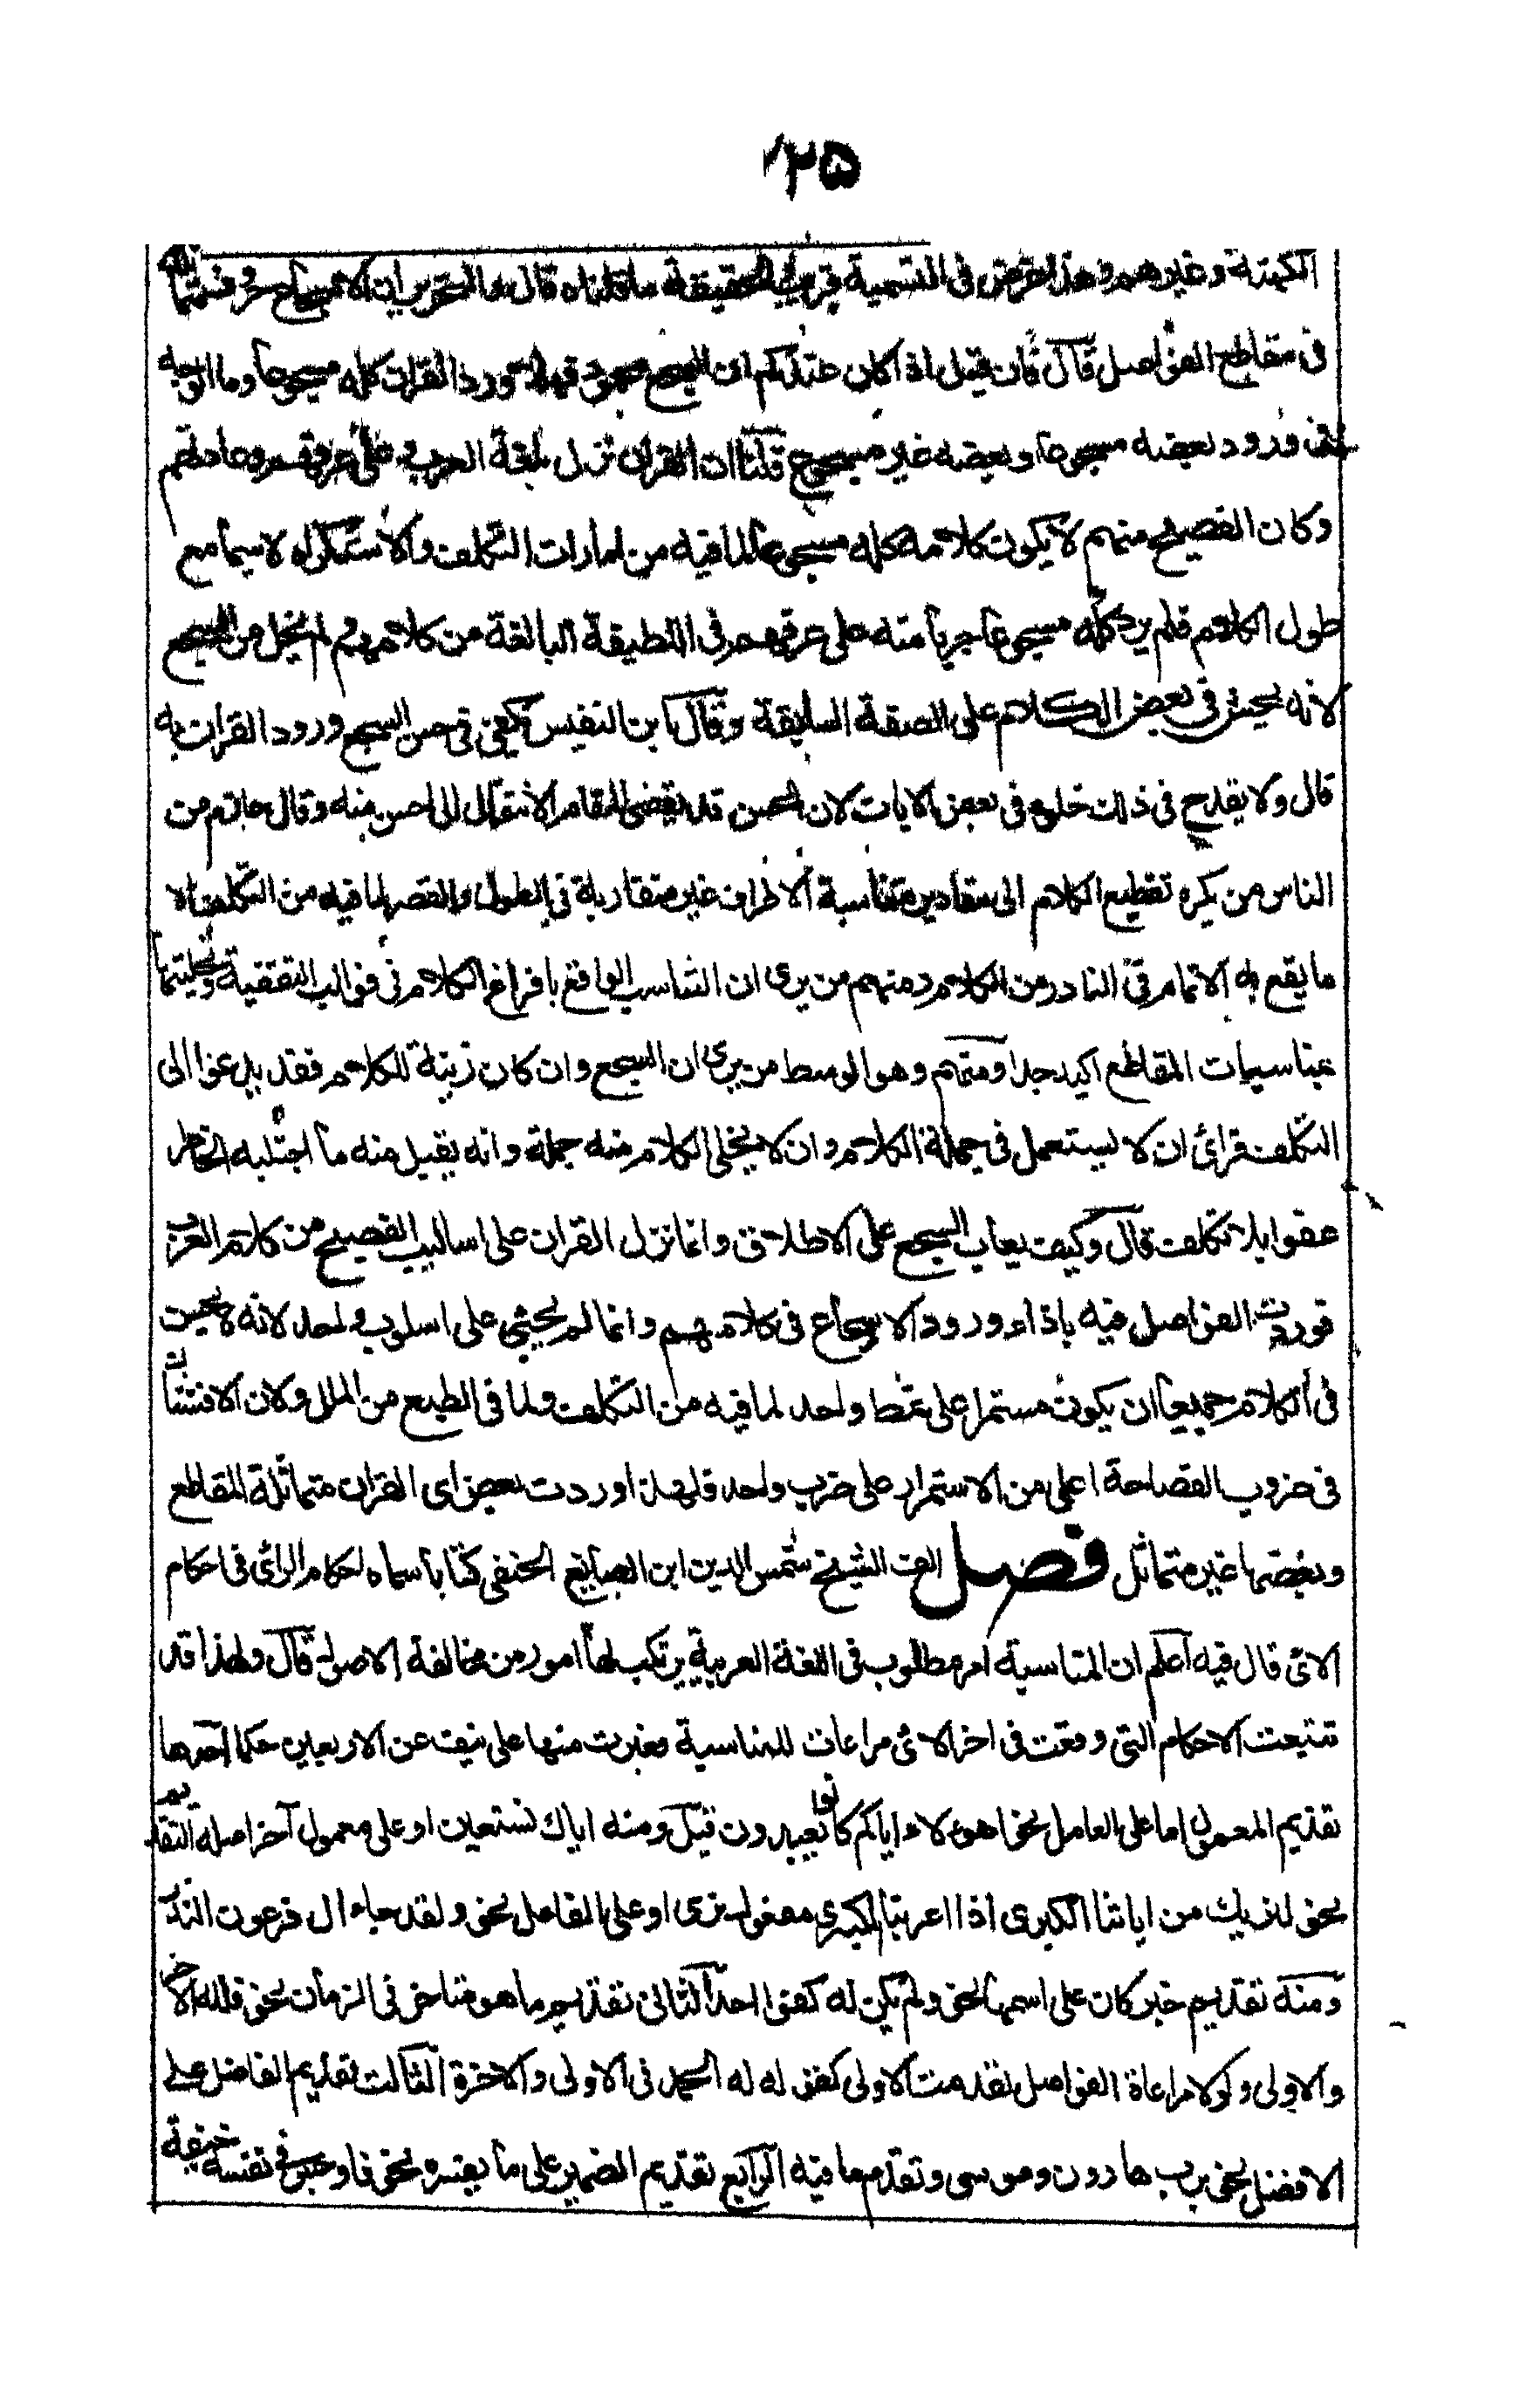 ١٢٥
الكهنة وغيرهم وهذا غرض في التسمية قريب والحقيقة ما قلناه قال والتحرير ان الاسجاع حروف متماثلة
في مقاطع الفواصل قال فان قيل اذا كان عندكم ان السجع محمود فهلا ورد القران كله مسجوعا وما الوجه
في ورود بعضه مسجوعا وبعضه غير مسجوع قلنا ان القران نزل بلغة العرب وعلى عرفهم وعادتهم
وكان الفصيح منهم لا يكون كلامه كله مسجوعا لما فيه من امارات التكلف والاستكراه لا سيما مع
طول الكلام فلم يرد كله مسجوعا جريا منه على عرفهم في اللطيفة البالغة من كلامهم ولم يخل من السجع
لانه يحسن في بعض الكلام على الصفة السابقة وقال ابن النفيس يكفي في حسن السجع ورود القران به
قال ولا يقدح في ذلك خلوه في بعض الايات لان الحسن قد يقتضي المقام الانتقال الى احسن منه وقال حازم من
الناس من يكره تقطيع الكلام الى مقادير متناسبة الاطراف غير متقاربة في الطول والقصر لما فيه من التكلف الا
ما يقع به الانمام في النادر من الكلام ومنهم من يرى ان التناسب الواقع بافراغ الكلام في قوالب التقفية وتحليتها
بمناسبات المقاطع اكيد جدا ومنهم وهو الوسط من يرى ان السجع وان كان زينة للكلام فقد يدعوا الى
التكلف فرائ ان لا يستعمل في جملة الكلام وان لا يخلى الكلام منه جملة وانه يقبل منه ما اجتلبه الخاطر
عفوا بلا تكلف قال وكيف يعاب السجع على الاطلاق وانما نزل القران على اساليب الفصيح من كلام العرب
فوردت الفواصل فيه باذاء ورود الاسجاع في كلامهم وانما لم يجئ على اسلوب واحد لانه لا يحسن
في الكلام جميعا ان يكون مستمرا على نمط واحد لما فيه من التكلف ولما في الطبع من الملل ولان الافتنان
في ضروب الفصاحة اعلى من الاستمرار على ضرب واحد فلهذا وردت بعض اى القران متماثلة المقاطع
وبعضها غير متماثل فصل الف الشيخ شمس الدين ابن الصايغ الحنفي كتابا سماه احكام الرائ في احكام
الائ قال فيه اعلم ان المناسبة امر مطلوب في اللغة العربية يرتكب لها امور من مخالفة الاصول قال ولهذا قد
تتبعت الاحكام التي وقعت في اخر الائ مراعات للمناسبة فعثرت منها على نيف عن الاربعين حكما احدها
تقديم المعمول اما على العامل نحو اهؤلاء اياكم كانوا يعبدون قيل ومنه اياك نستعين او على معمول آخر اصله التقديم
نحو لنريك من اياتنا الكبرى اذا اعربنا الكبرى مفعول نرى او على الفاعل نحو ولقد جاء ال فرعون النذر
ومنه تقديم خبر كان على اسمها نحو ولم يكن له كفوا احد الثاني تقديم ما هو متاخر في الزمان نحو فلله الاخرة
والاولى ولولا مراعاة الفواصل لقدمت الاولى كقوله له الحمد في الاولى والاخرة الثالث تقديم الفاضل على
الافضل نحو برب هارون وموسى وتقدم ما فيه الرابع تقديم الضمير على ما يفسره نحو فاوجس في نفسه خيفة